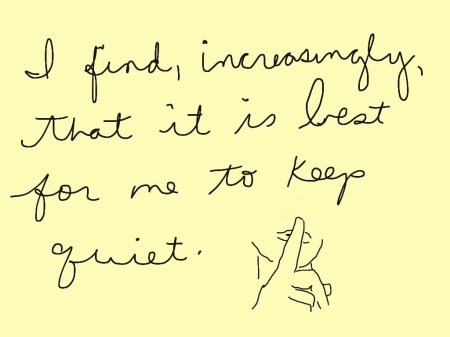 I find, increasingly,
that it is best
for me to keep
quiet.